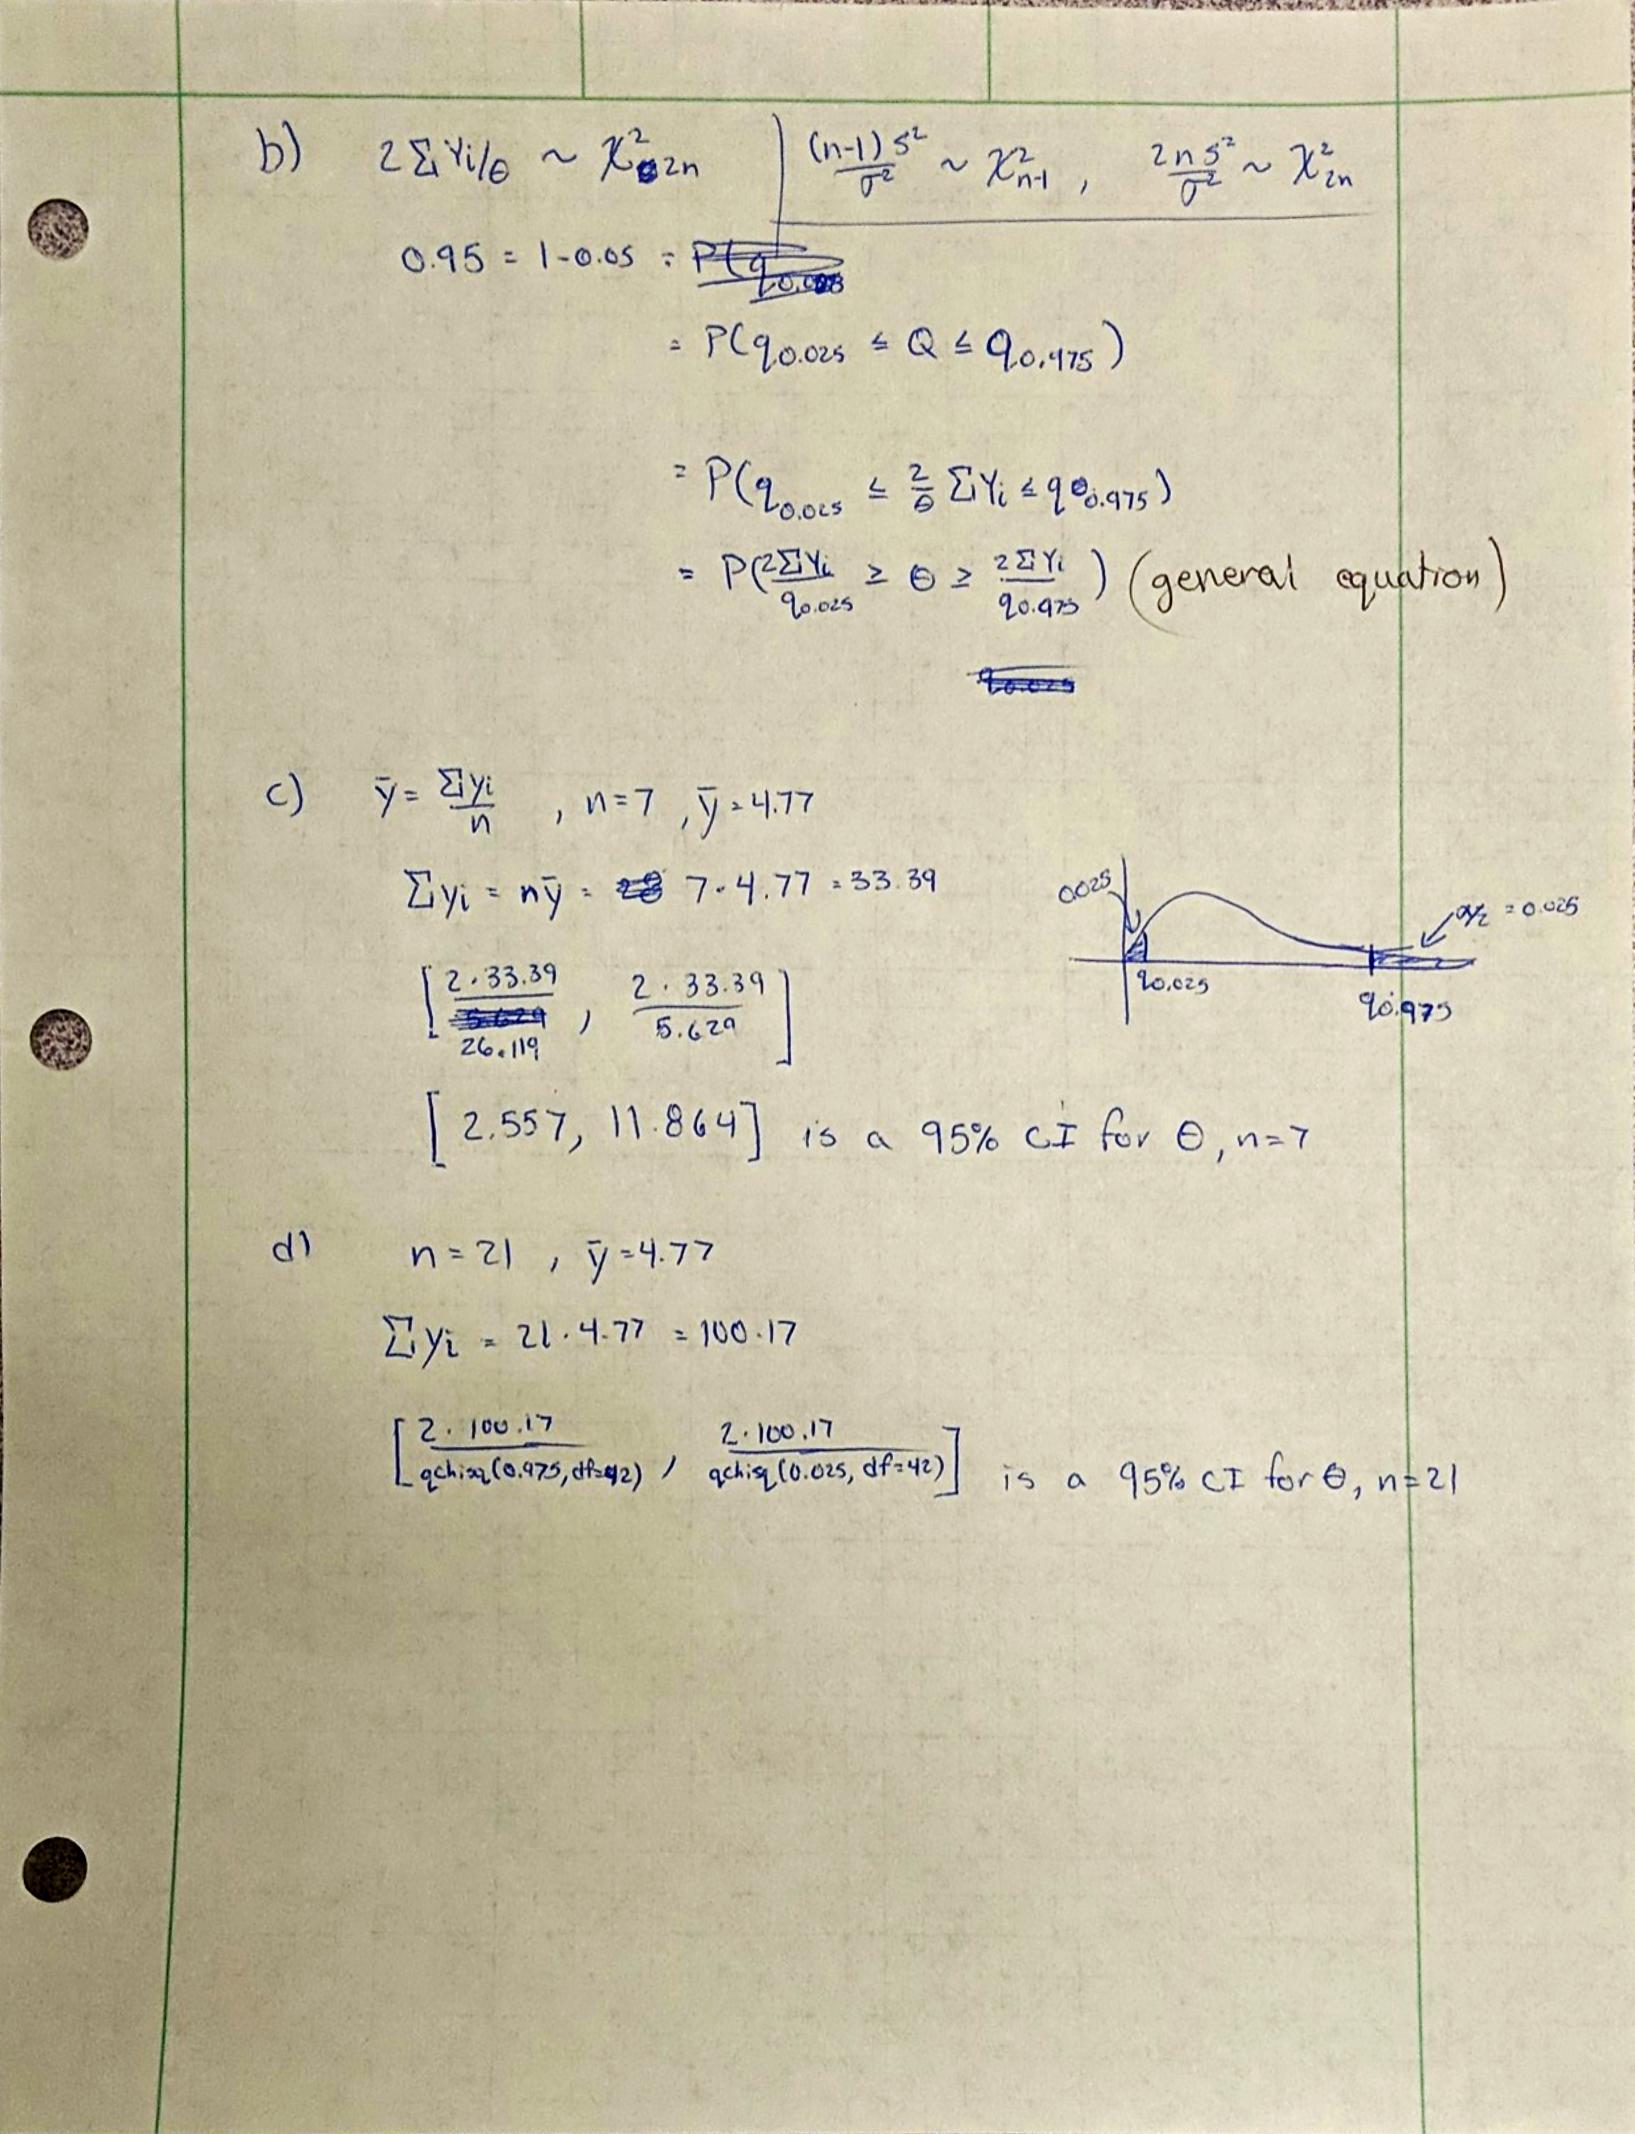 b) 2ΣYi/θ ~ χ²2n | (n-1)S²/σ² ~ χ²n-1 , 2nS²/σ² ~ χ²2n
0.95 = 1-0.05 =
= P(q0.025 ≤ Q ≤ q0.975)
= P(q0.025 ≤ 2/θ ΣYi ≤ q0.975)
= P(2ΣYi/q0.025 ≥ θ ≥ 2ΣYi/q0.975) (general equation)
c) ȳ = Σyi/n , n=7 , ȳ=4.77
Σyi = nȳ = 7·4.77 = 33.39
0.025
α/2 = 0.025
q0.025
q0.975
[2·33.39/26.119 , 2·33.39/5.629]
[2.557, 11.864] is a 95% CI for θ, n=7
d) n=21 , ȳ=4.77
Σyi = 21·4.77 = 100.17
[2·100.17/qchisq(0.975, df=42) , 2·100.17/qchisq(0.025, df=42)] is a 95% CI for θ, n=21